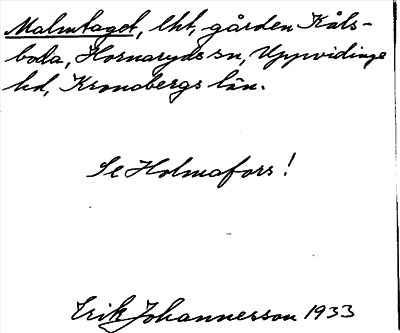 Malmtaget, lht, gården Kåls-
boda, Hornaryds sn, Uppvidinge
hd, Kronobergs län.
Se Holmafors!
Erik Johannesson 1933